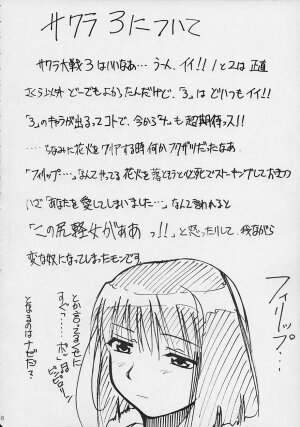 サクラ3について
サクラ大戦3はいいなあ…うーん、イイ!!1と2は正直
さくら以外どーでもよかったんだけど、「3」はどいつもイイ!!
「3」のキャラが出るってコトで、今から「4」も超期待っス!!
……ちなみに花火をクリアする時何かフクザツだったなあ
「フィリップ…」なんてやってる花火を落とそうと必死でストーキングしておきつつ
いざ「あなたを愛してしまいました…」なんて言われると
「この尻軽女がぁぁっ!!」と怒ったりして、我ながら
変な奴になってしまったモンです
フィリップ…
とか言ってるくせに
すぐ「…ポッ」
ピンピロリン
となるのはナゼだ?